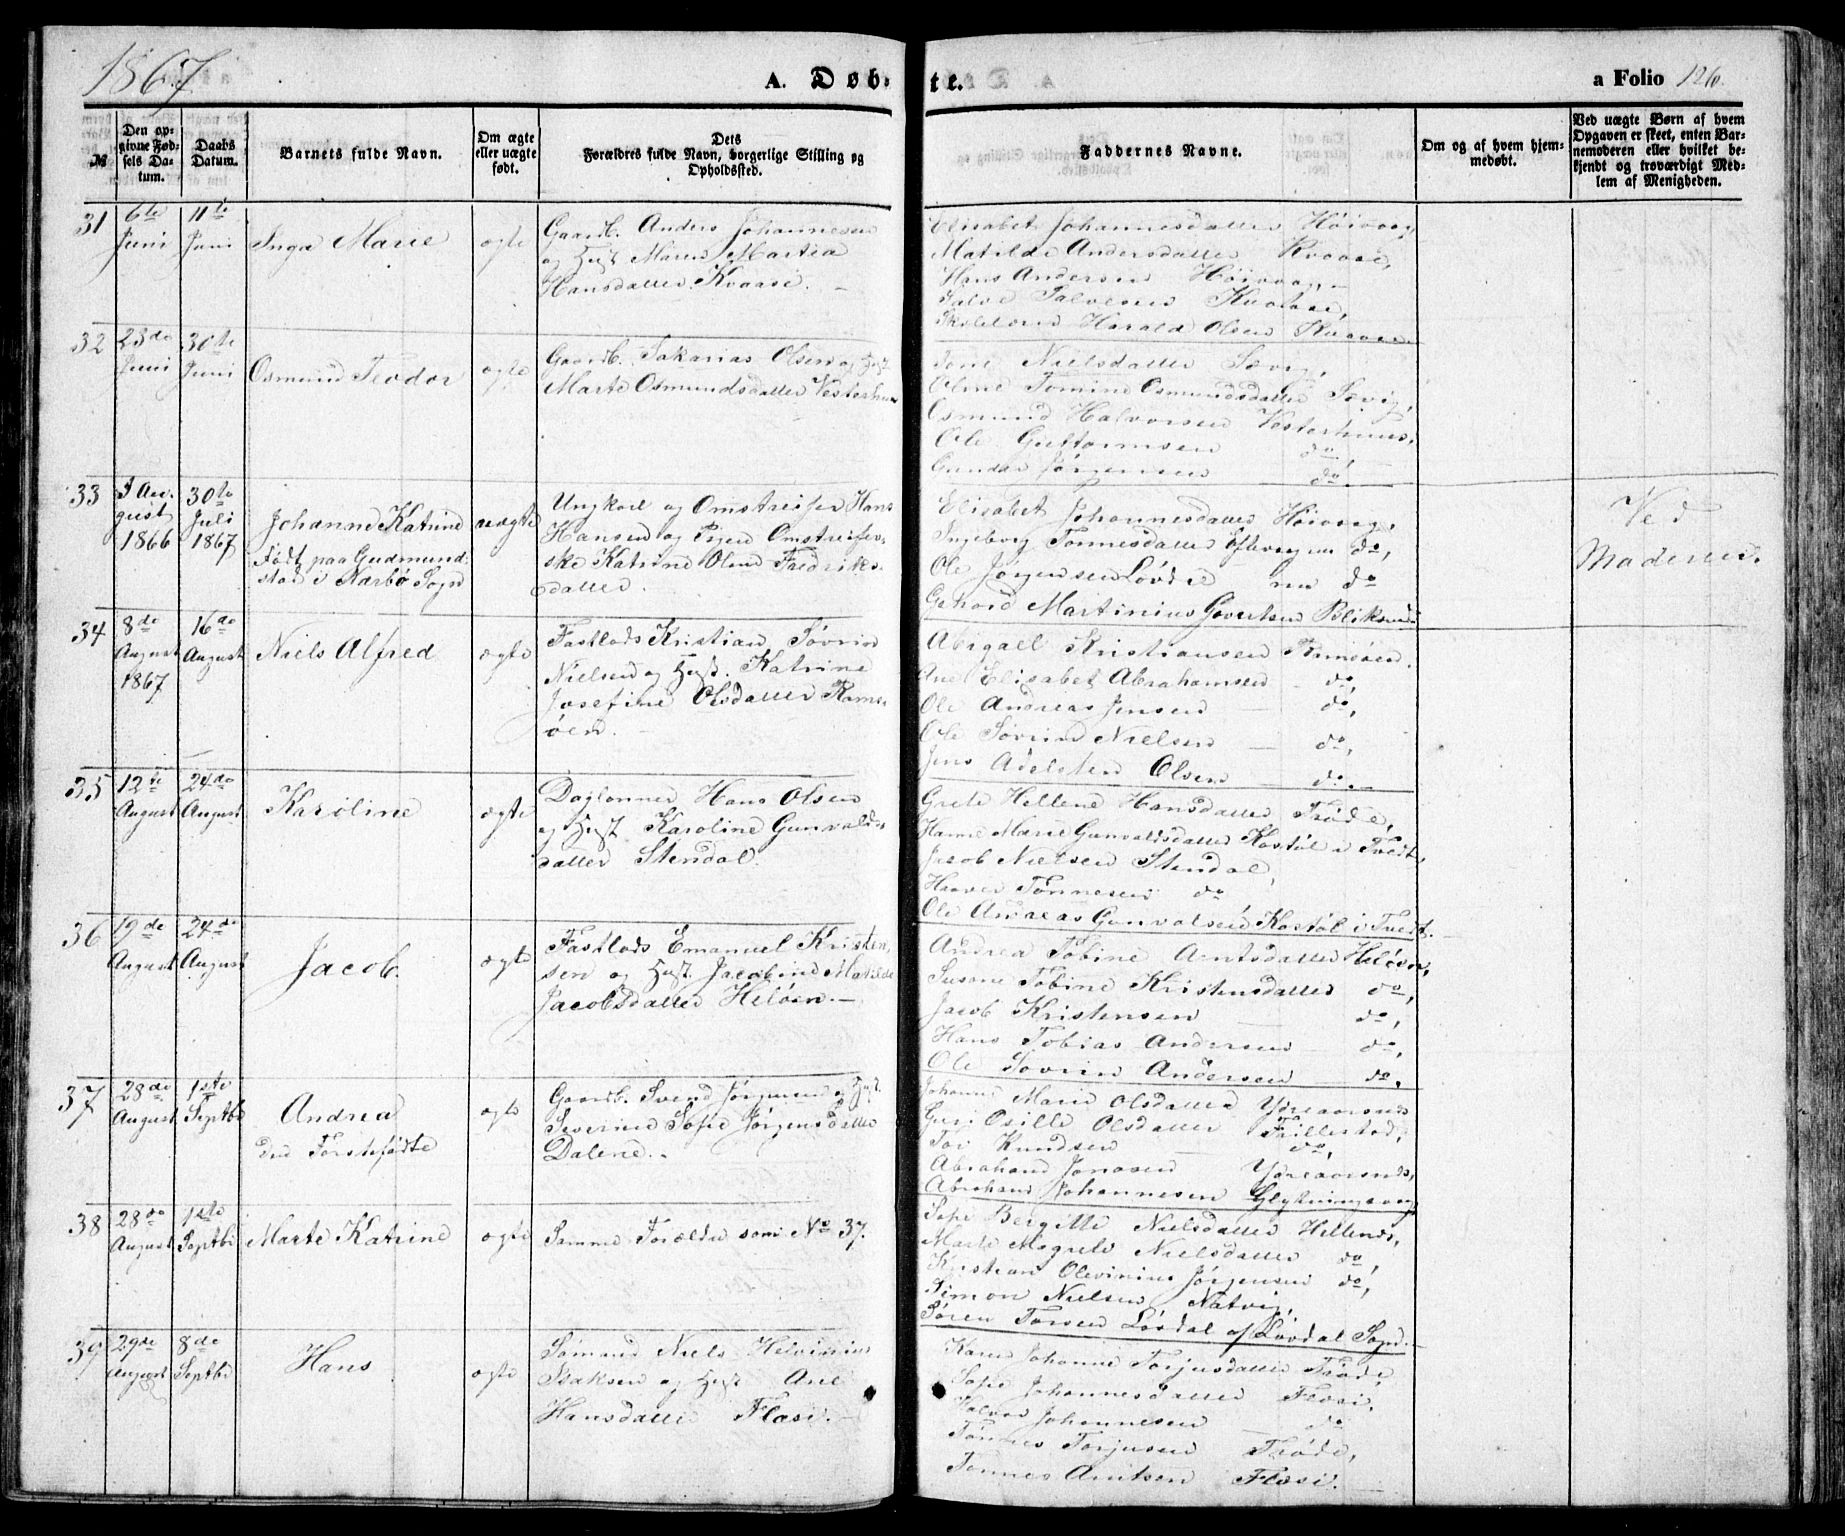 1867
A. Døb-
te.
a Folio 126.
№
Den op-
givne Fød-
sels Da-
tum.
Daabs
Datum.
Barnets fulde Navn.
Om ægte
eller uægte
født.
Dets
Forældres fulde Navn, borgerlige Stilling og
Opholdssted.
Faddernes Navne.
Om og af hvem hjem-
medøbt.
Ved uægte Børn af hvem
Opgaven er skeet, enten Bar-
nemoderen eller hvilket be-
kjendt og troværdigt Med-
lem af Menigheden.
31
6te
Juni
11te
Juni
Inga Marie
ægte
Gaardb. Anders Johannesen
og Hust Maren Martia
Hansdatter Kvaase. —
Elisabet Johannesdatter Høivaag
Matilde Andersdatter Kvaase,
Hans Andersen Høivaag, —
Salve Salvesen Kvaase,
Skolelærer Harald Olsen Kvaase.
32
23de
Juni
30te
Juni
Osmund Teodor
ægte
Gaardb. Sakarias Olsen og Hust
Marte Osmundsdatter Vesterhuus
Nielsdatter Sævig,
Oline Tomine Osmundsdatter Sævig,
Osmund Halvorsen Vesterhuus,
Ole Guttormsen do,
Gunder Jørgensen do. —
33
5 Au-
gust
1866
30te
Juli
1867
Johanne Katrine
Født paa Gudmund-
stad i Nærbø Sogn
uægte
Ungkarl og Omstreifer Hans
Hansen og Pigen Omstreifer-
ske Katrine Olene Fredriks-
datter.
Elisabet Johannesdatter Høivaag,
Ingeborg Tønnesdatter do,
Ole Jørgensen Løvdal do
Gehard Martinius Govertsen Bliksund
Ved
Moderen.
34
8de
August
1867
16de
August
Niels Alfred
ægte
Fastlods Kristian Søvrin
Nielsen og Hust. Katrine
Josefine Olsdatter Ramse-
øen.
Abigall Kristiansen Ramsøen.
Ane Elisabet Abrahamsen — do,
Ole Andreas Jensen — do,
Ole Søvrin Nielsen — do,
Jens Adelsten Olsen — do. —
35
12te
August
24de
August
Karoline
ægte
Daglønner Hans Olsen
og Hust Karoline Gunvalds-
datter Stendal.
Grete Hellene Hansdatter Trøde,
Hanne Marie Gunvaldsdatter Kostøl i Tvedt,
Jacob Nielsen Stendal,
Haaver Tønnesen do
Ole Andreas Gunvalsen Kostøl i Tvedt.
36
19de
August
24de
August
Jacob.
ægte
Fastlods Emanuel Kristen-
sen og Hust. Jacobine Matilde
Jacobsdatter Heløen. —
Andrea Tobine Arntsdatter Heløen,
Susane Tobine Kristensdatter do,
Jacob Kristensen do,
Hans Tobias Andersen — do,
Ole Søvrin Andersen — do,
37
28de
August
1ste
Septbr
Andrea
den Førstefødte
ægte
Gaardb. Svend Jørgensen og Hust.
Severine Sofie Jørgensdatter
Dalene. —
Johanne Marie Olsdatter Ydreaarsnes
Guri Osille Olsdatter Trillestad,
Tor Knudsen — do,
Abraham Jonasen Ydreaarsnes,
Abraham Johannesen
38
28de
August
1ste
Septbr
Marte Katrine
ægte
Samme Forældre som No 37.
Sofie Bergitte Nielsdatter Hellenes,
Marte Magrete Nielsdatter do,
Kristian Olevinius Jørgensen do,
Simon Nielsen Natvig,
Søren Torsen Løvdal af Løvdal Sogn. —
39
29de
August
8de
Septbr
Hans
ægte
Sømand Niels Helvinius
Isaksen og Hust Ane
Hansdatter Flasi. —
Karen Johanne Torjusdatter Trøde,
Sofie Johannesdatter Flasi,
Halvor Johannesen do
Tønnes Torjusen Trøde,
Tønnes Arntsen Flasi.